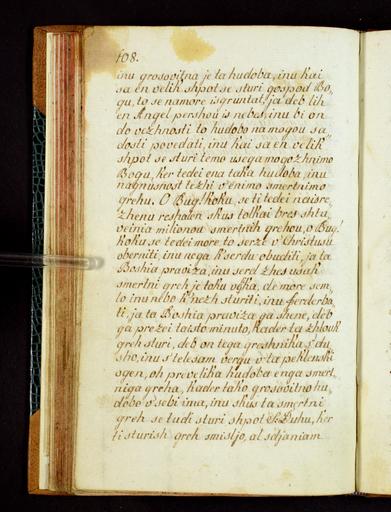 108.
inu grosovitna je ta hudoba, inu kai
sa en velik shpot se sturi gospod Bo„
gu, to se namore isgruntat, ja deb lih
en Angel pershou is nebes, inu bi on
do vezhnosti to hudobo na mogou sa„
dosti povedati, inu kai sa en velik
shpot se sturi temo usega mogozhnimo
Bogu, ker tedei ena taka hudoba, inu
nagnusnost tezhi v'enimo smertnimo
grehu. O Bug! koku, se ti tedei neisre„
zhenu reshalen skus tolkai bres shta„
veinia milionou smertnih grehou, o Bug!
koku se tedei more to serze v' Christusu
oberniti, inu nega k'serdu obuditi, ja ta
Boshia praviza, inu serd zhes usak
smertni greh je toku velka, de more sem„
lo inu nebo k'nezh sturiti, inu ferderba„
ti, ja ta Boshia praviza ga shene, deb
ga prezei toisto minuto, kader ta zhlouk
greh sturi, deb on tega greshnika s' du„
sho, inu s' telesam vergu v' ta peklenski
ogen, oh prevelika hudoba enga smert„
niga greha, kader tako grosovitno hu„
dobo v' sebi ima, inu skus ta smertni
greh se tudi sturi shpot S: Duhu, ker
ti sturish greh smisljo, al sdjaniam